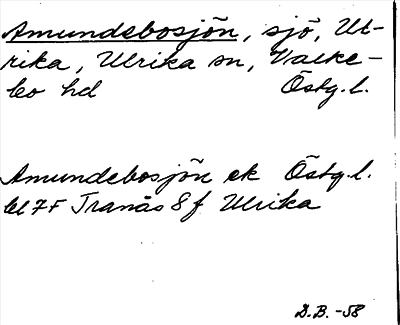 Amundebosjön, sjö, Ul-
rika, Ulrika sn, Valke-
bo hd Östg.l.
Amundebosjön ek Östg.l.
bl 7F Tranås 8f Ulrika
D.B.-58